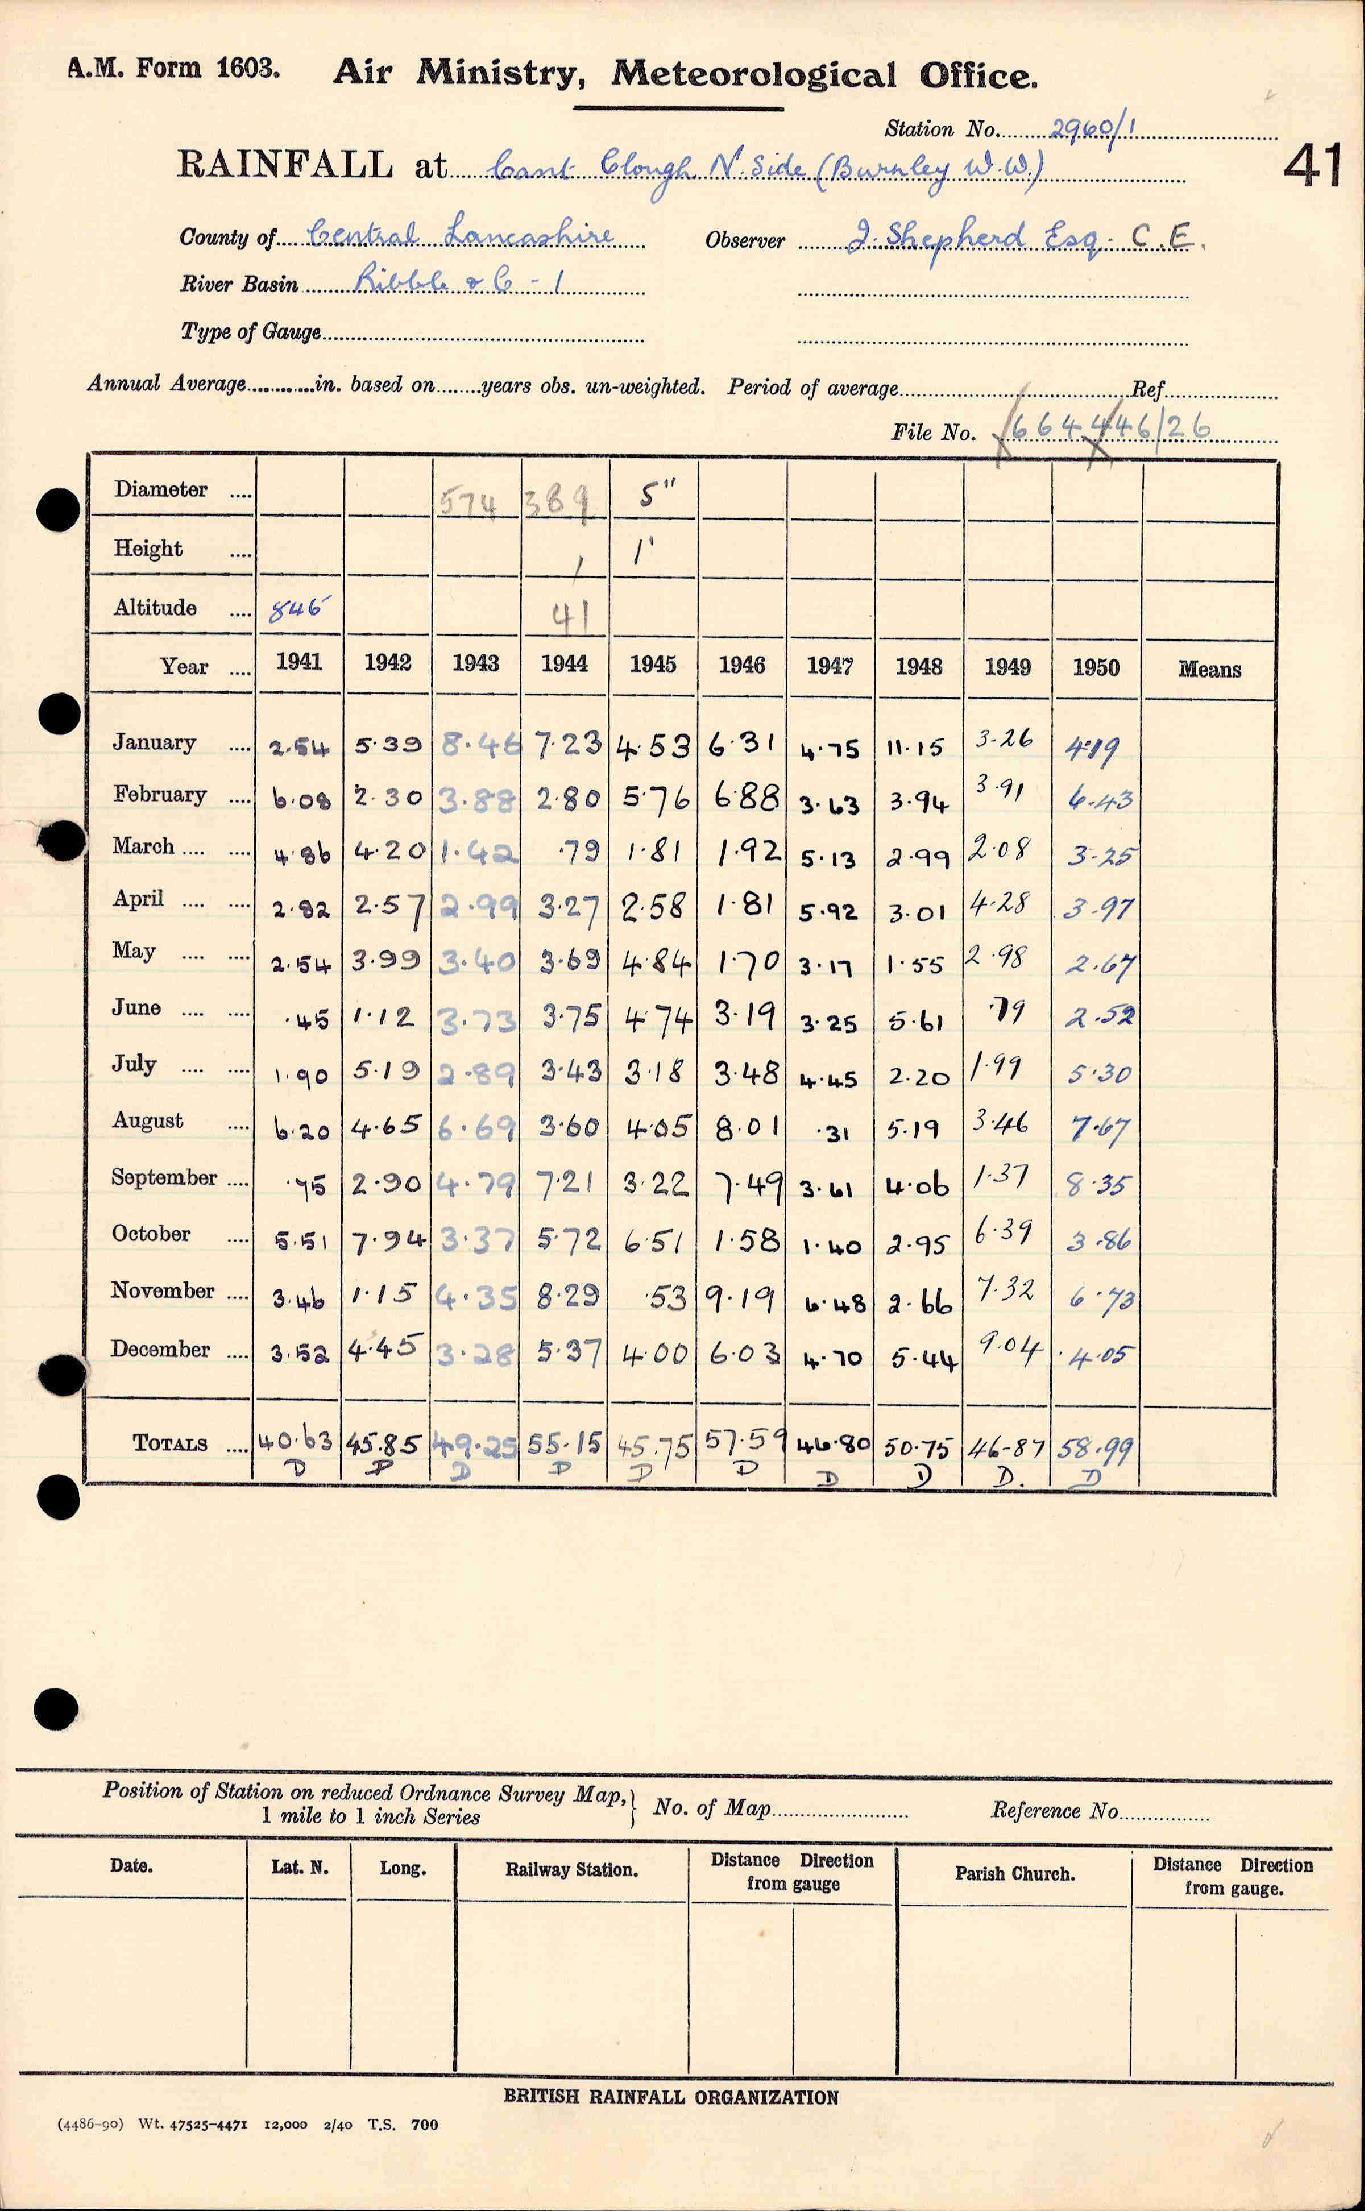 A.M. Form 1603. Air Ministry, Meteorological Office.
Station No. 2960/1
RAINFALL at Cant Clough N. Side (Burnley W.W.) 41
County of Central Lancashire Observer J. Shepherd Esq. C.E.
River Basin Ribble & C - 1
Type of Gauge
Annual Average in. based on years obs. un-weighted. Period of average Ref.
File No. 664446/26
Diameter 574 389 5"
Height 1 1'
Altitude 846 41
Year 1941 1942 1943 1944 1945 1946 1947 1948 1949 1950 Means
January 2.54 5.39 8.46 7.23 4.53 6.31 4.75 11.15 3.26 4.19
February 6.08 2.30 3.88 2.80 5.76 6.88 3.63 3.94 3.91 6.43
March 4.86 4.20 1.42 .79 1.81 1.92 5.13 2.99 2.08 3.25
April 2.82 2.57 2.99 3.27 2.58 1.81 5.92 3.01 4.28 3.97
May 2.54 3.99 3.40 3.69 4.84 1.70 3.17 1.55 2.98 2.67
June .45 1.12 3.73 3.75 4.74 3.19 3.25 5.61 .79 2.52
July 1.90 5.19 2.89 3.43 3.18 3.48 4.45 2.20 1.99 5.30
August 6.20 4.65 6.69 3.60 4.05 8.01 .31 5.19 3.46 7.67
September .75 2.90 4.79 7.21 3.22 7.49 3.61 4.06 1.37 8.35
October 5.51 7.94 3.37 5.72 6.51 1.58 1.40 2.95 6.39 3.86
November 3.46 1.15 4.35 8.29 .53 9.19 6.48 2.66 7.32 6.73
December 3.52 4.45 3.28 5.37 4.00 6.03 4.70 5.44 9.04 4.05
TOTALS 40.63 45.85 49.25 55.15 45.75 57.59 46.80 50.75 46.87 58.99
D D D D D D D D D. D
Position of Station on reduced Ordnance Survey Map, No. of Map Reference No.
1 mile to 1 inch Series
Date. Lat. N. Long. Railway Station. Distance Direction from gauge Parish Church. Distance Direction from gauge.
BRITISH RAINFALL ORGANIZATION
(4486-90) Wt. 47525-4471 12,000 2/40 T.S. 700